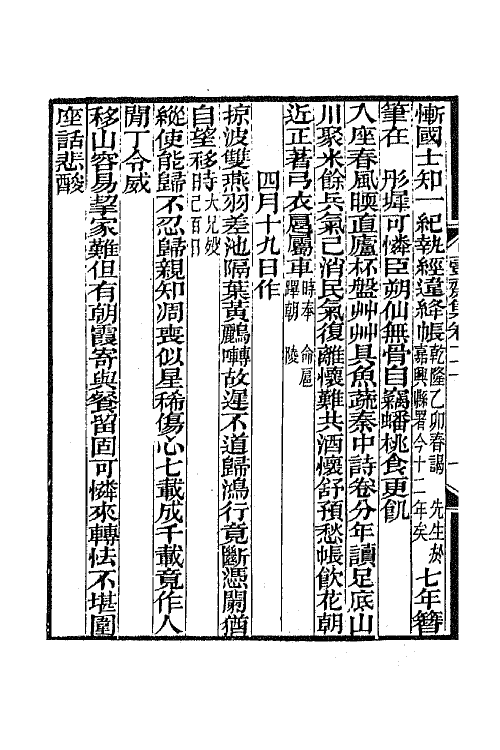 慚國士知一紀執經違絳帳乾隆乙卯春謁 先生於嘉興縣署今十二年矣七年簪
筆在 彤墀可憐臣朔仙無骨自竊蟠桃食更飢
入座春風暖直廬杯盤艸艸具魚蔬秦中詩卷分年讀足底山
川聚米餘兵氣已消民氣復離懷難共酒懷舒預愁帳飲花朝
近正著弓衣扈屬車時奉 命扈蹕朝 陵
四月十九日作
掠波雙燕羽差池隔葉黃鸝囀故遲不道歸鴻行竟斷憑闌猶
自望移時大兄歿
縱使能歸不忍歸親知凋喪似星稀傷心七載成千載竟作人
間丁令威
移山容易挈家難但有朝霞寄與餐留固可憐來轉怯不堪圍
座話悲酸